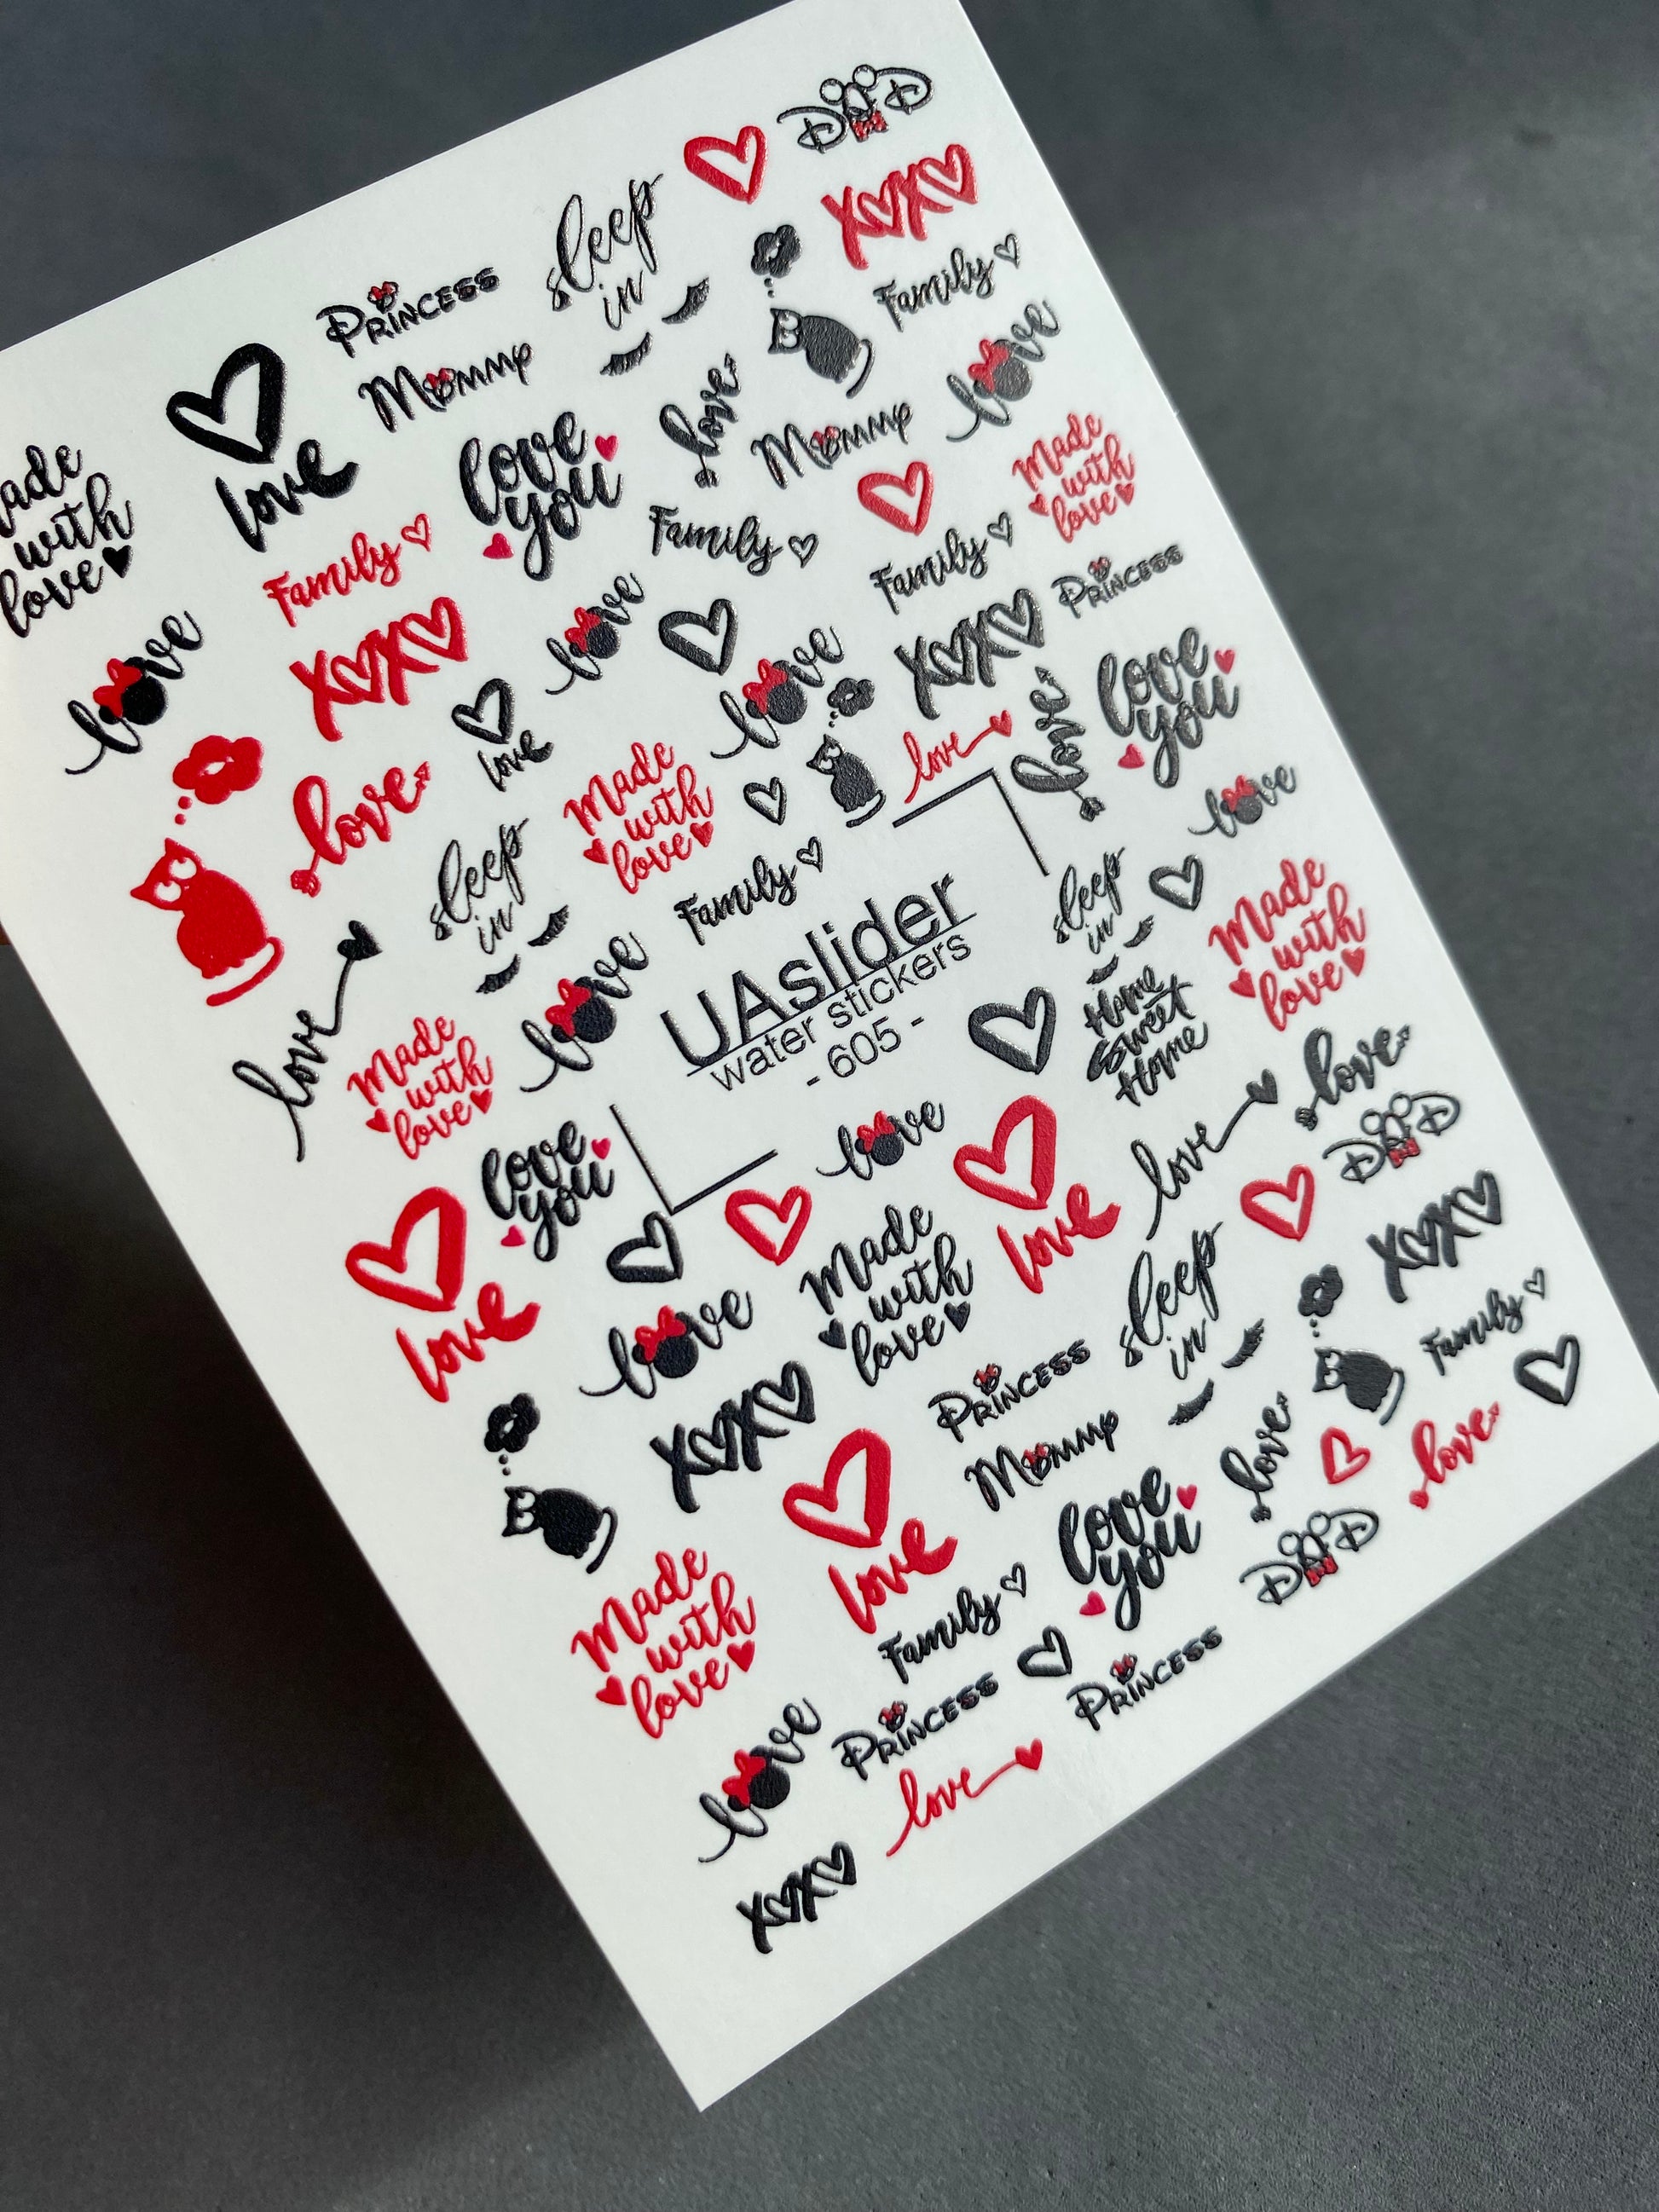 DAD
XOXO
sleep
in
Princess
Mommy
Family
love
love
Made
with
love
love
you
love
Mommy
Made
with
love
Family
Family
Family
Princess
love
XOXO
love
love
XOXO
love
you
love
love
love
Made
with
love
love
love
sleep
in
Family
love
sleep
in
Made
with
love
UAslider
water stickers
- 605 -
Home
Sweet
Home
love
Made
with
love
love
love
love
DAD
love
you
love
love
Made
with
love
love
XOXO
love
sleep
in
Family
XOXO
Princess
Mommy
love
love
love
love
you
DAD
Made
with
love
Family
Princess
Princess
love
love
XOXO